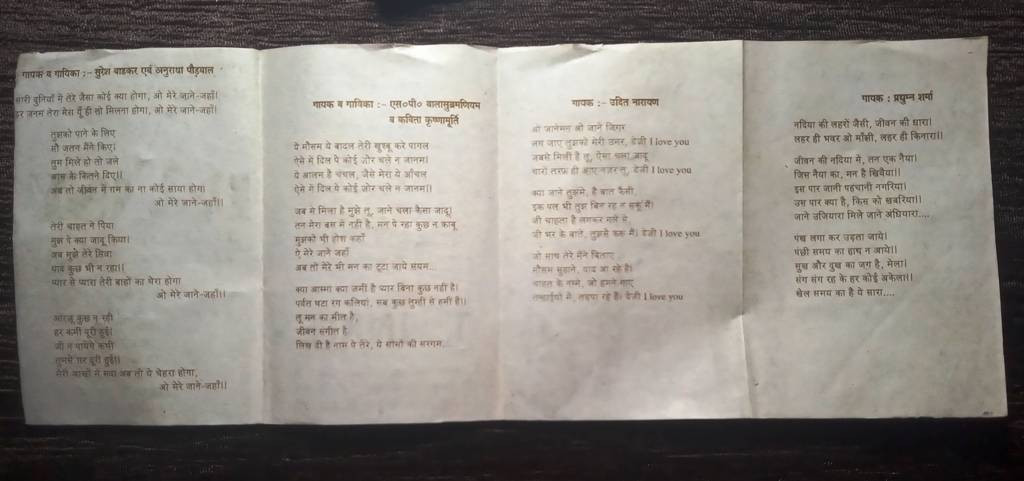 गायक व गायिका :- सुरेश वाडकर एवं अनुराधा पौडवाल
सारी दुनियाँ में तेरे जैसा कोई क्या होगा, ओ मेरे जाने-जहाँ।
हर जनम तेरा मेरा यूँ ही तो मिलना होगा, ओ मेरे जाने-जहाँ।
तुझको पाने के लिए
सौ जतन मैंने किए।
तुम मिले हो तो जले
आस के कितने दिए।।
अब तो जीवन में गम का ना कोई साया होगा
ओ मेरे जाने-जहाँ।।
तेरी चाहत ने पिया
मुझ पे क्या जादू किया।
अब मुझे तेरे सिवा
याद कुछ भी न रहा।।
प्यार से प्यारा तेरी बाहों का घेरा होगा
ओ मेरे जाने-जहाँ।।
आरजू कुछ न रही
हर कमी पूरी हुई।
जी न पायेंगे कभी
तुमसे गर दूरी हुई।।
मेरी आखों में सदा अब तो ये चेहरा होगा,
ओ मेरे जाने-जहाँ।।
गायक व गायिका :- एस०पी० बालासुब्रमणियम
व कविता कृष्णामूर्ति
ये मौसम ये बादल तेरी खुश्बू करे पागल
ऐसे में दिल पे कोई जोर चले न जानम।
ये आलम है चंचल, जैसे मेरा ये आँचल
ऐसे में दिल पे कोई जोर चले न जानम।।
जब से मिला है मुझे तू, जाने चला कैसा जादू।
तन मेरा बस में नही है, मन पे रहा कुछ न काबू
मुझको भी होश कहाँ
ऐ मेरे जाने जहाँ
अब तो मेरे भी मन का टूटा जाये संयम...
क्या आसमां क्या जमीं है प्यार बिना कुछ नही है।
पर्वत घटा रंग कलियां, सब कुछ तुम्ही से हमीं है।।
तू मन का मीत है,
जीवन संगीत है
लिख दी है नाम पे तेरे, ये साँसों की सरगम...
गायक :- उदित नारायण
ओ जानेमन ओ जाने जिगर
लग जाए तुझको मेरी उमर, डेजी I love you
जबसे मिली है तू, ऐसा चला जादू
चारों तरफ ही आए नजर तू, डेजी I love you
क्या जाने तुझमें, है बात कैसी,
इक पल भी तुझ बिन रह न सकूं मैं।
जी चाहता है लगकर गले से,
जी भर के बातें, तुझसे करूं मैं। डेजी I love you
जो साथ तेरे मैंने बिताए
मौसम सुहाने, याद आ रहे है।
चाहत के नग्मे, जो हमने गाए
तन्हाईयों में, तड़पा रहे है। डेजी I love you
गायक : प्रद्युम्न शर्मा
नदिया की लहरों जैसी, जीवन की धारा।
लहर ही भवर ओ माँझी, लहर ही किनारा।।
जीवन की नदिया में, तन एक नैया।
जिस नैया का, मन है खिवैया।।
इस पार जानी पहचानी नगरिया।
उस पार क्या है, किस को खबरिया।।
जाने उजियारा मिले जाने अंधियारा....
पंख लगा कर उड़ता जाये।
पंछी समय का हाथ न आये।।
सुख और दुख का जग है, मेला।
संग संग रह के हर कोई अकेला।।
खेल समय का है ये सारा....